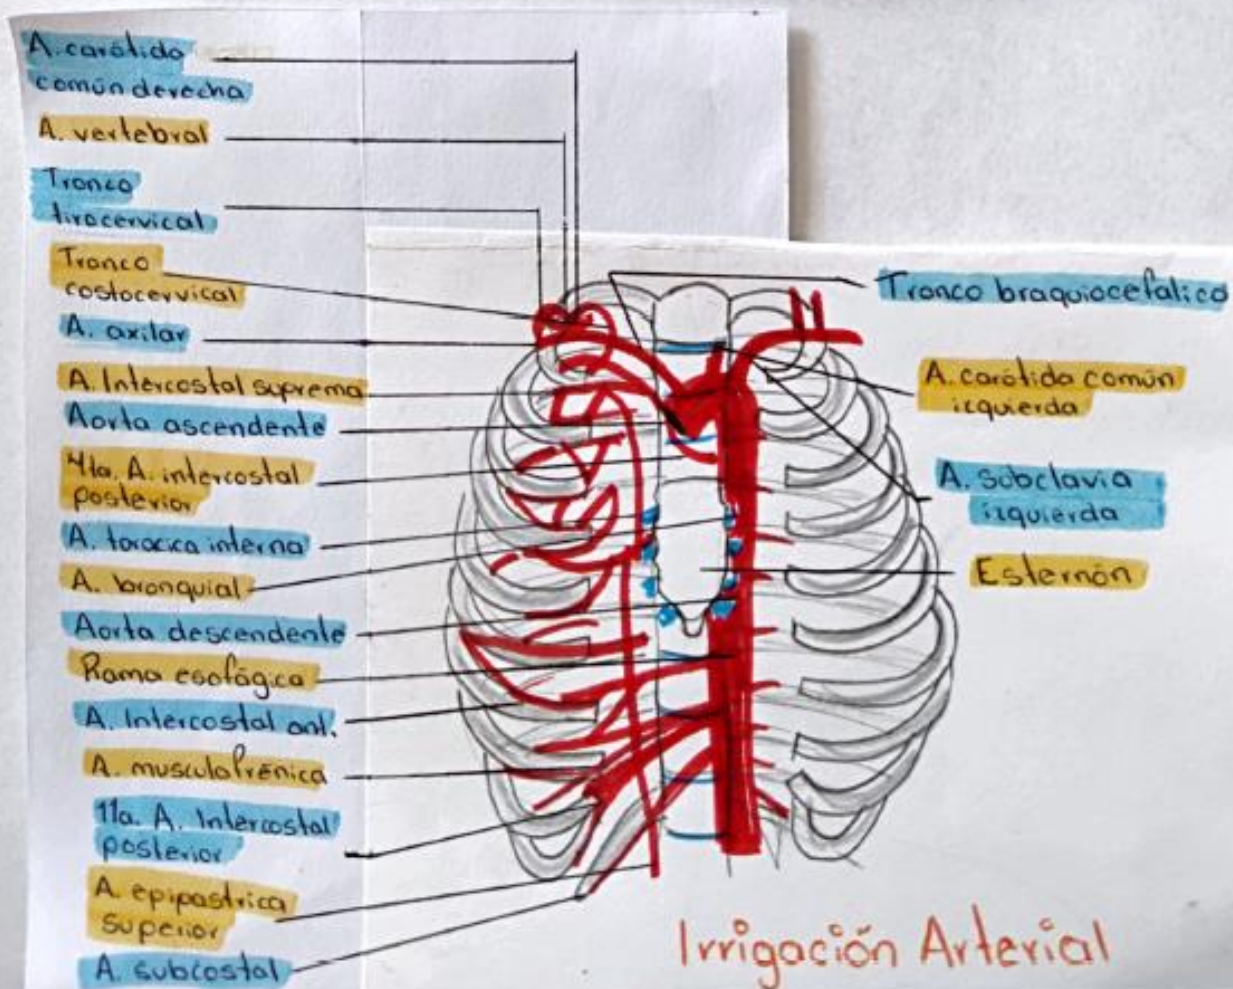 A. carótida
común derecha
A. vertebral
Tronco
tirocervical
Tronco
costocervical
A. axilar
A. Intercostal suprema
Aorta ascendente
4ta. A. intercostal
posterior
A. toracica interna
A. bronquial
Aorta descendente
Rama esofágica
A. Intercostal ant.
A. musculofrénica
11a. A. Intercostal
posterior
A. epipastrica
superior
A. subcostal
Tronco braquiocefalico
A. carótida común
izquierda
A. subclavia
izquierda
Esternón
Irrigación Arterial